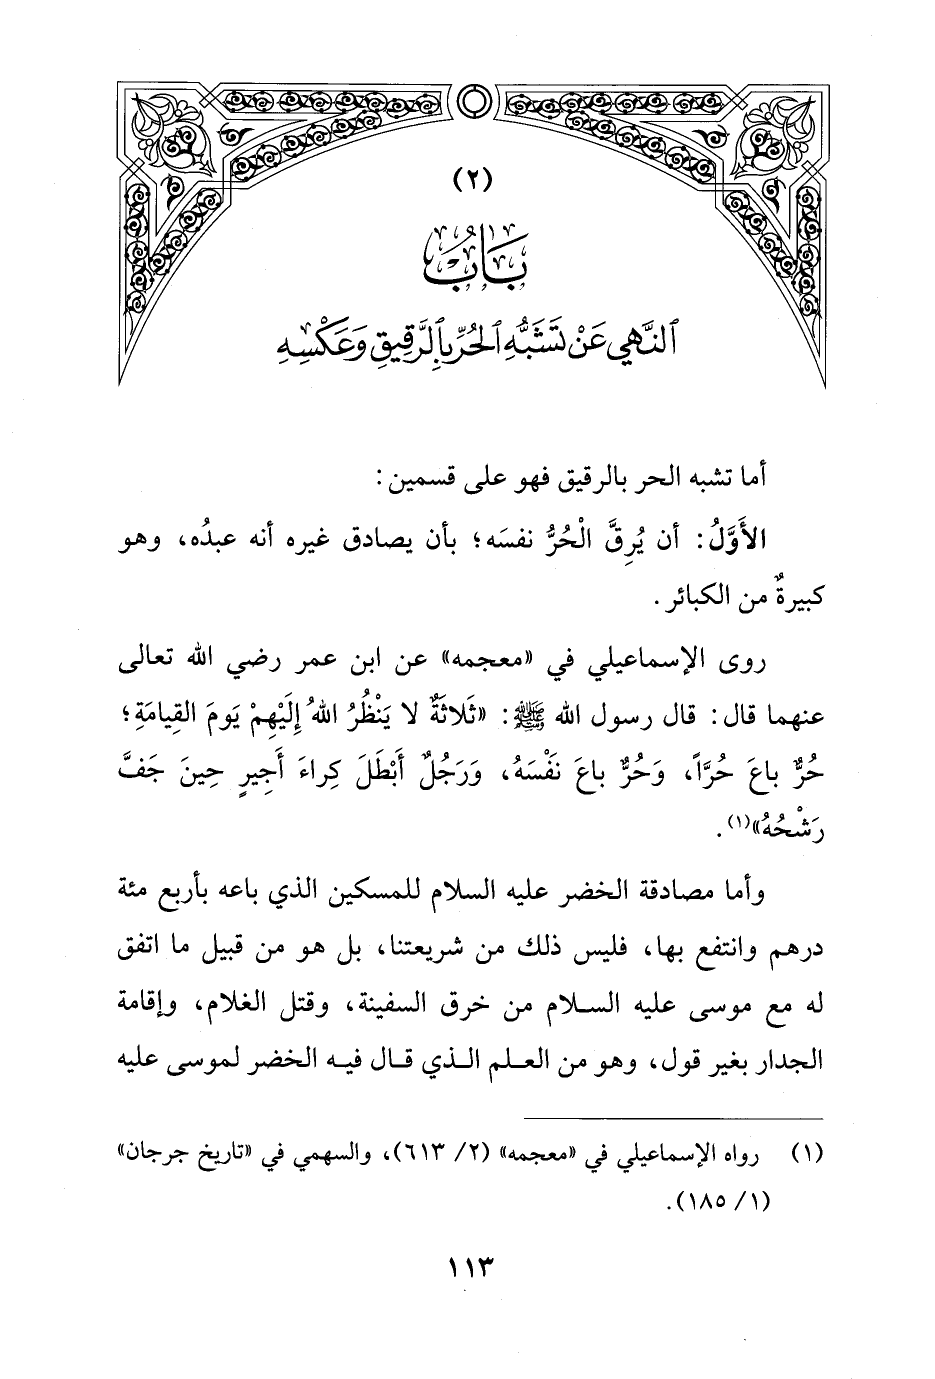 (٢)
بَابُ
النَّهْيِ عَنْ تَشَبُّهِ الحُرِّ بِالرَّقِيقِ وَعَكْسِهِ
أما تشبه الحر بالرقيق فهو على قسمين :
الأَوَّلُ : أن يُرِقَّ الْحُرُّ نفسَه؛ بأن يصادق غيره أنه عبدُه، وهو
كبيرةٌ من الكبائر .
روى الإسماعيلي في «معجمه» عن ابن عمر رضي الله تعالى
عنهما قال : قال رسول الله ﷺ : «ثَلاثَةٌ لا يَنْظُرُ اللهُ إِلَيْهِمْ يَومَ القِيامَةِ؛
حُرٌّ باعَ حُرَّاً، وَحُرٌّ باعَ نَفْسَهُ، وَرَجُلٌ أَبْطَلَ كِراءَ أَجِيرٍ حِينَ جَفَّ
رَشْحُهُ»(١) .
وأما مصادقة الخضر عليه السلام للمسكين الذي باعه بأربع مئة
درهم وانتفع بها، فليس ذلك من شريعتنا، بل هو من قبيل ما اتفق
له مع موسى عليه السلام من خرق السفينة، وقتل الغلام، وإقامة
الجدار بغير قول، وهو من العلم الذي قال فيه الخضر لموسى عليه
(١) رواه الإسماعيلي في «معجمه» (٢/ ٦١٣)، والسهمي في «تاريخ جرجان»
(١/ ١٨٥).
١١٣